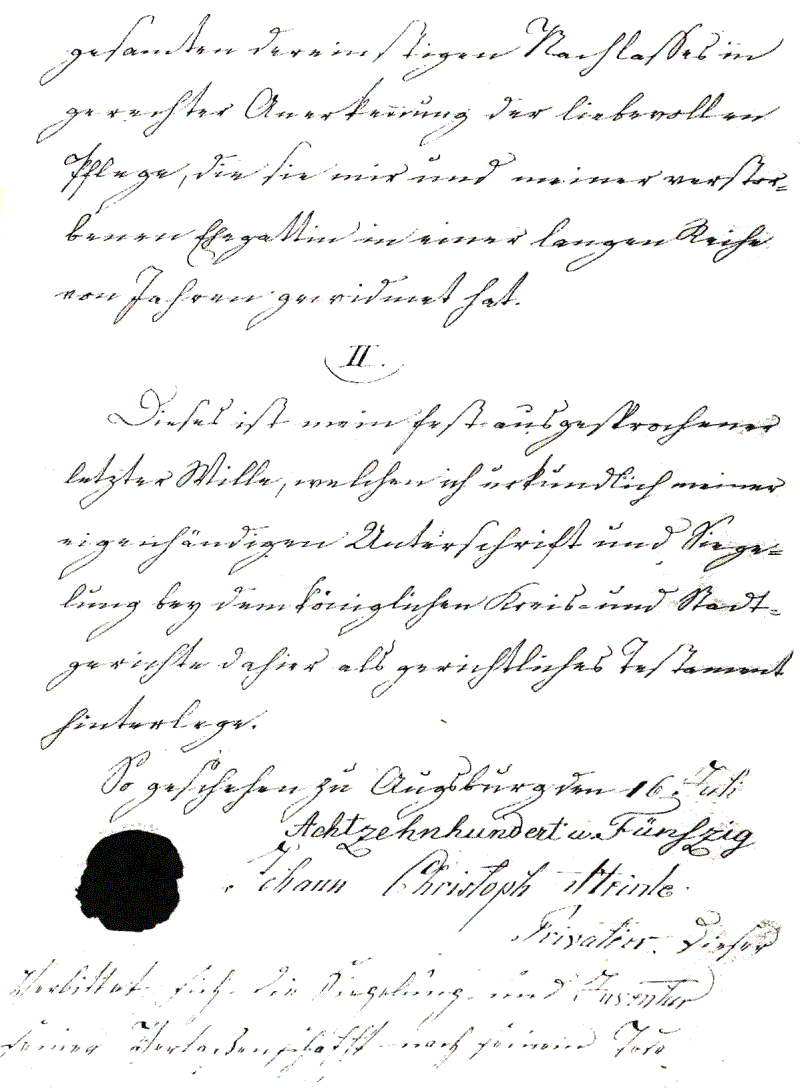 gesamten dereinstigen Nachlasses in
gerechter Anerkennung der liebevollen
Pflege, die sie mir und meiner verstor=
benen Ehegattin in einer langen Reihe
von Jahren gewidmet hat.
II.
Dieses ist mein fest ausgesprochener
letzter Wille, welchen ich urkundlich meiner
eigenhändigen Unterschrift und Siege=
lung bey dem königlichen Kreis- und Stadt=
gerichte dahier als gerichtliches Testament
hinterlege.
So geschehen zu Augsburg den 16. Juli
Achtzehnhundert u. Fünfzig
Johann Christoph
Privatier. Dieser
Verbittet sich die Siegelung und Inventur
seiner Verlassenschafft nach seinem Tode